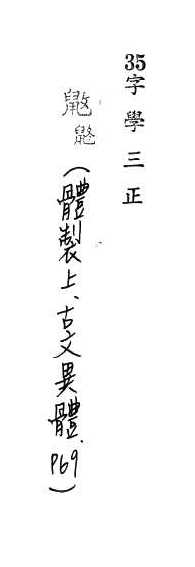 35字學三正
(體製上、古文異體.P69)